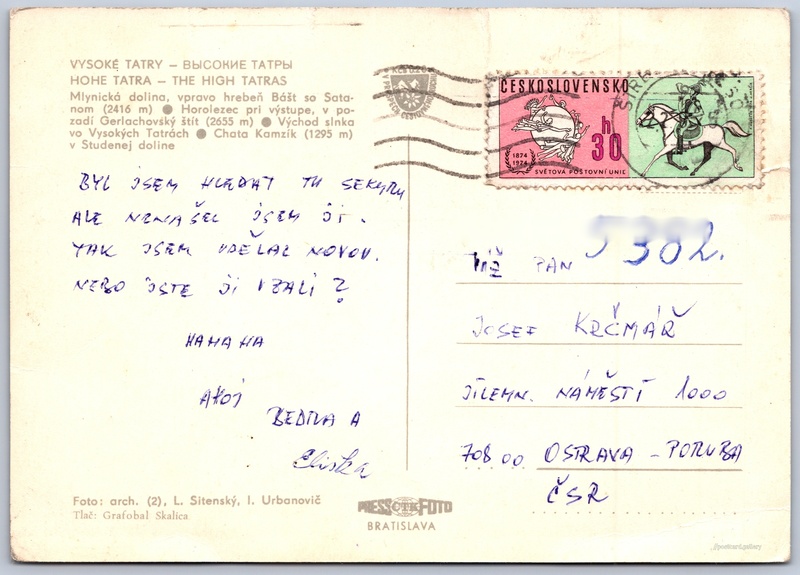 VYSOKÉ TATRY – ВЫСОКИЕ ТАТРЫ
HOHE TATRA – THE HIGH TATRAS
Mlynická dolina, vpravo hrebeň Bášt so Sata-
nom (2416 m) ● Horolezec pri výstupe, v po-
zadí Gerlachovský štít (2655 m) ● Východ slnka
vo Vysokých Tatrách ● Chata Kamzík (1295 m)
v Studenej doline
ČESKOSLOVENSKO
h
30
1874
1974
SVĚTOVÁ POŠTOVNÍ UNIE
BYL JSEM HLEDAT TU SEKYRU
ALE NENAŠEL JSEM JI.
TAK JSEM UDĚLAL NOVOU.
NEBO JSTE JI VZALI?
HAHAHA
AHOJ
BEDŇA A
Eliška
PAN
JOSEF KRČMÁŘ
JILEMN. NÁMĚSTÍ 1000
708 00 OSTRAVA – PORUBA
ČSR
Foto: arch. (2), L. Sitenský, I. Urbanovič
Tlač: Grafobal Skalica
PRESSFOTO
ČTK
BRATISLAVA